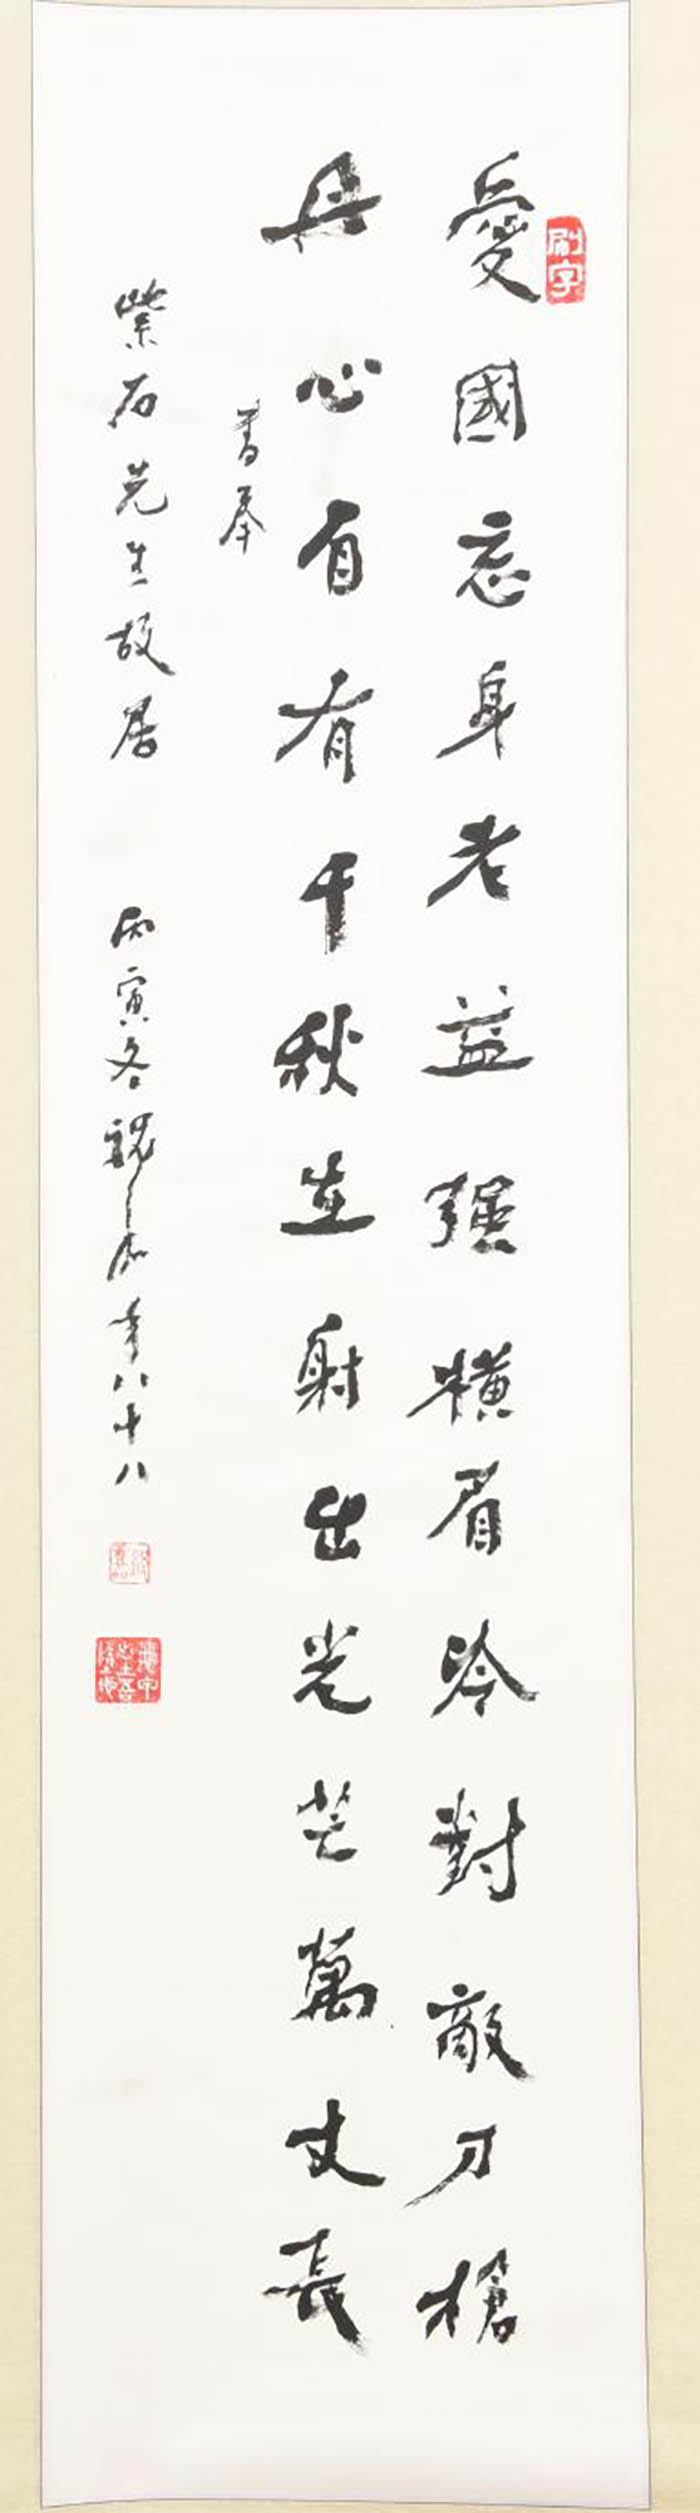 刷字
愛國忘身老益强橫眉冷對敵刀槍
丹心自有千秋在射出光芒萬丈長
書奉
紫石先生故居
丙寅冬魏年八十八